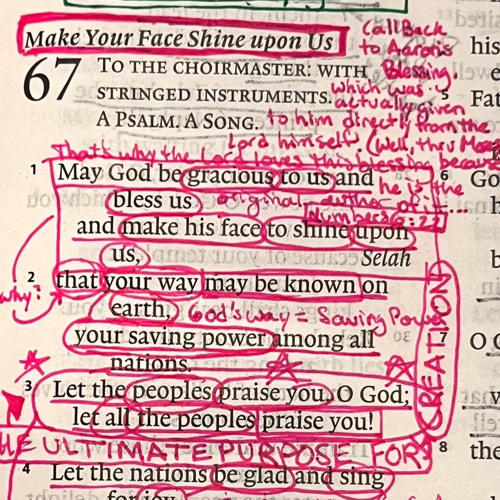 Make Your Face Shine upon Us
Call Back
to Aaron's
Blessing.
67 TO THE CHOIRMASTER: WITH
STRINGED INSTRUMENTS.
A PSALM. A SONG.
which was
actually given
to him directly from the
Lord himself (well, thru
That's why the Lord loves this blessing
he is the
original author of it...
Numbers 6:22
1 May God be gracious to us and
bless us
and make his face to shine upon
us, Selah
2 that your way may be known on
earth,
why?
God's way = Saving Power
your saving power among all
nations.
3 Let the peoples praise you, O God;
let all the peoples praise you!
THE ULTIMATE PURPOSE FOR
CREATION
4 Let the nations be glad and sing
for joy
his
5
Fat
6 Go
h
b
7 O G
w
8 the